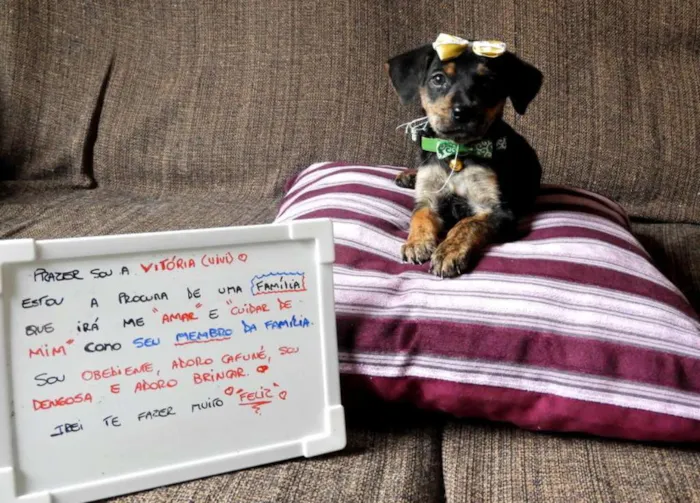 PRAZER SOU A VITÓRIA (VIVI) ♡
ESTOU A PROCURA DE UMA FAMÍLIA
QUE IRÁ ME "AMAR" E "CUIDAR DE
MIM" COMO SEU MEMBRO DA FAMÍLIA.
SOU OBEDIENTE, ADORO CAFUNÉ, SOU
DENGOSA E ADORO BRINCAR. ♡
IREI TE FAZER MUITO ♡ "FELIZ" ♡